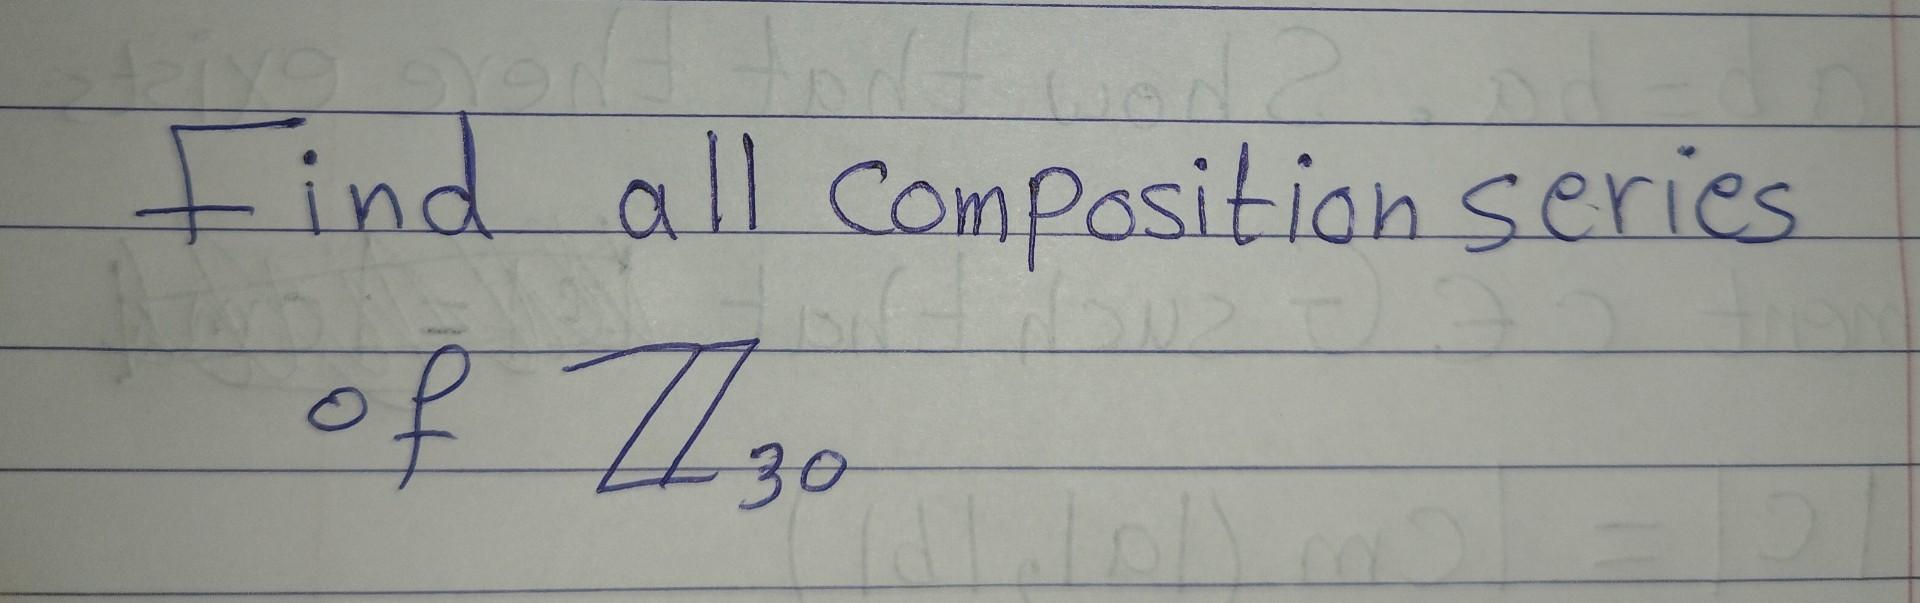 Find all composition series
of ℤ₃₀